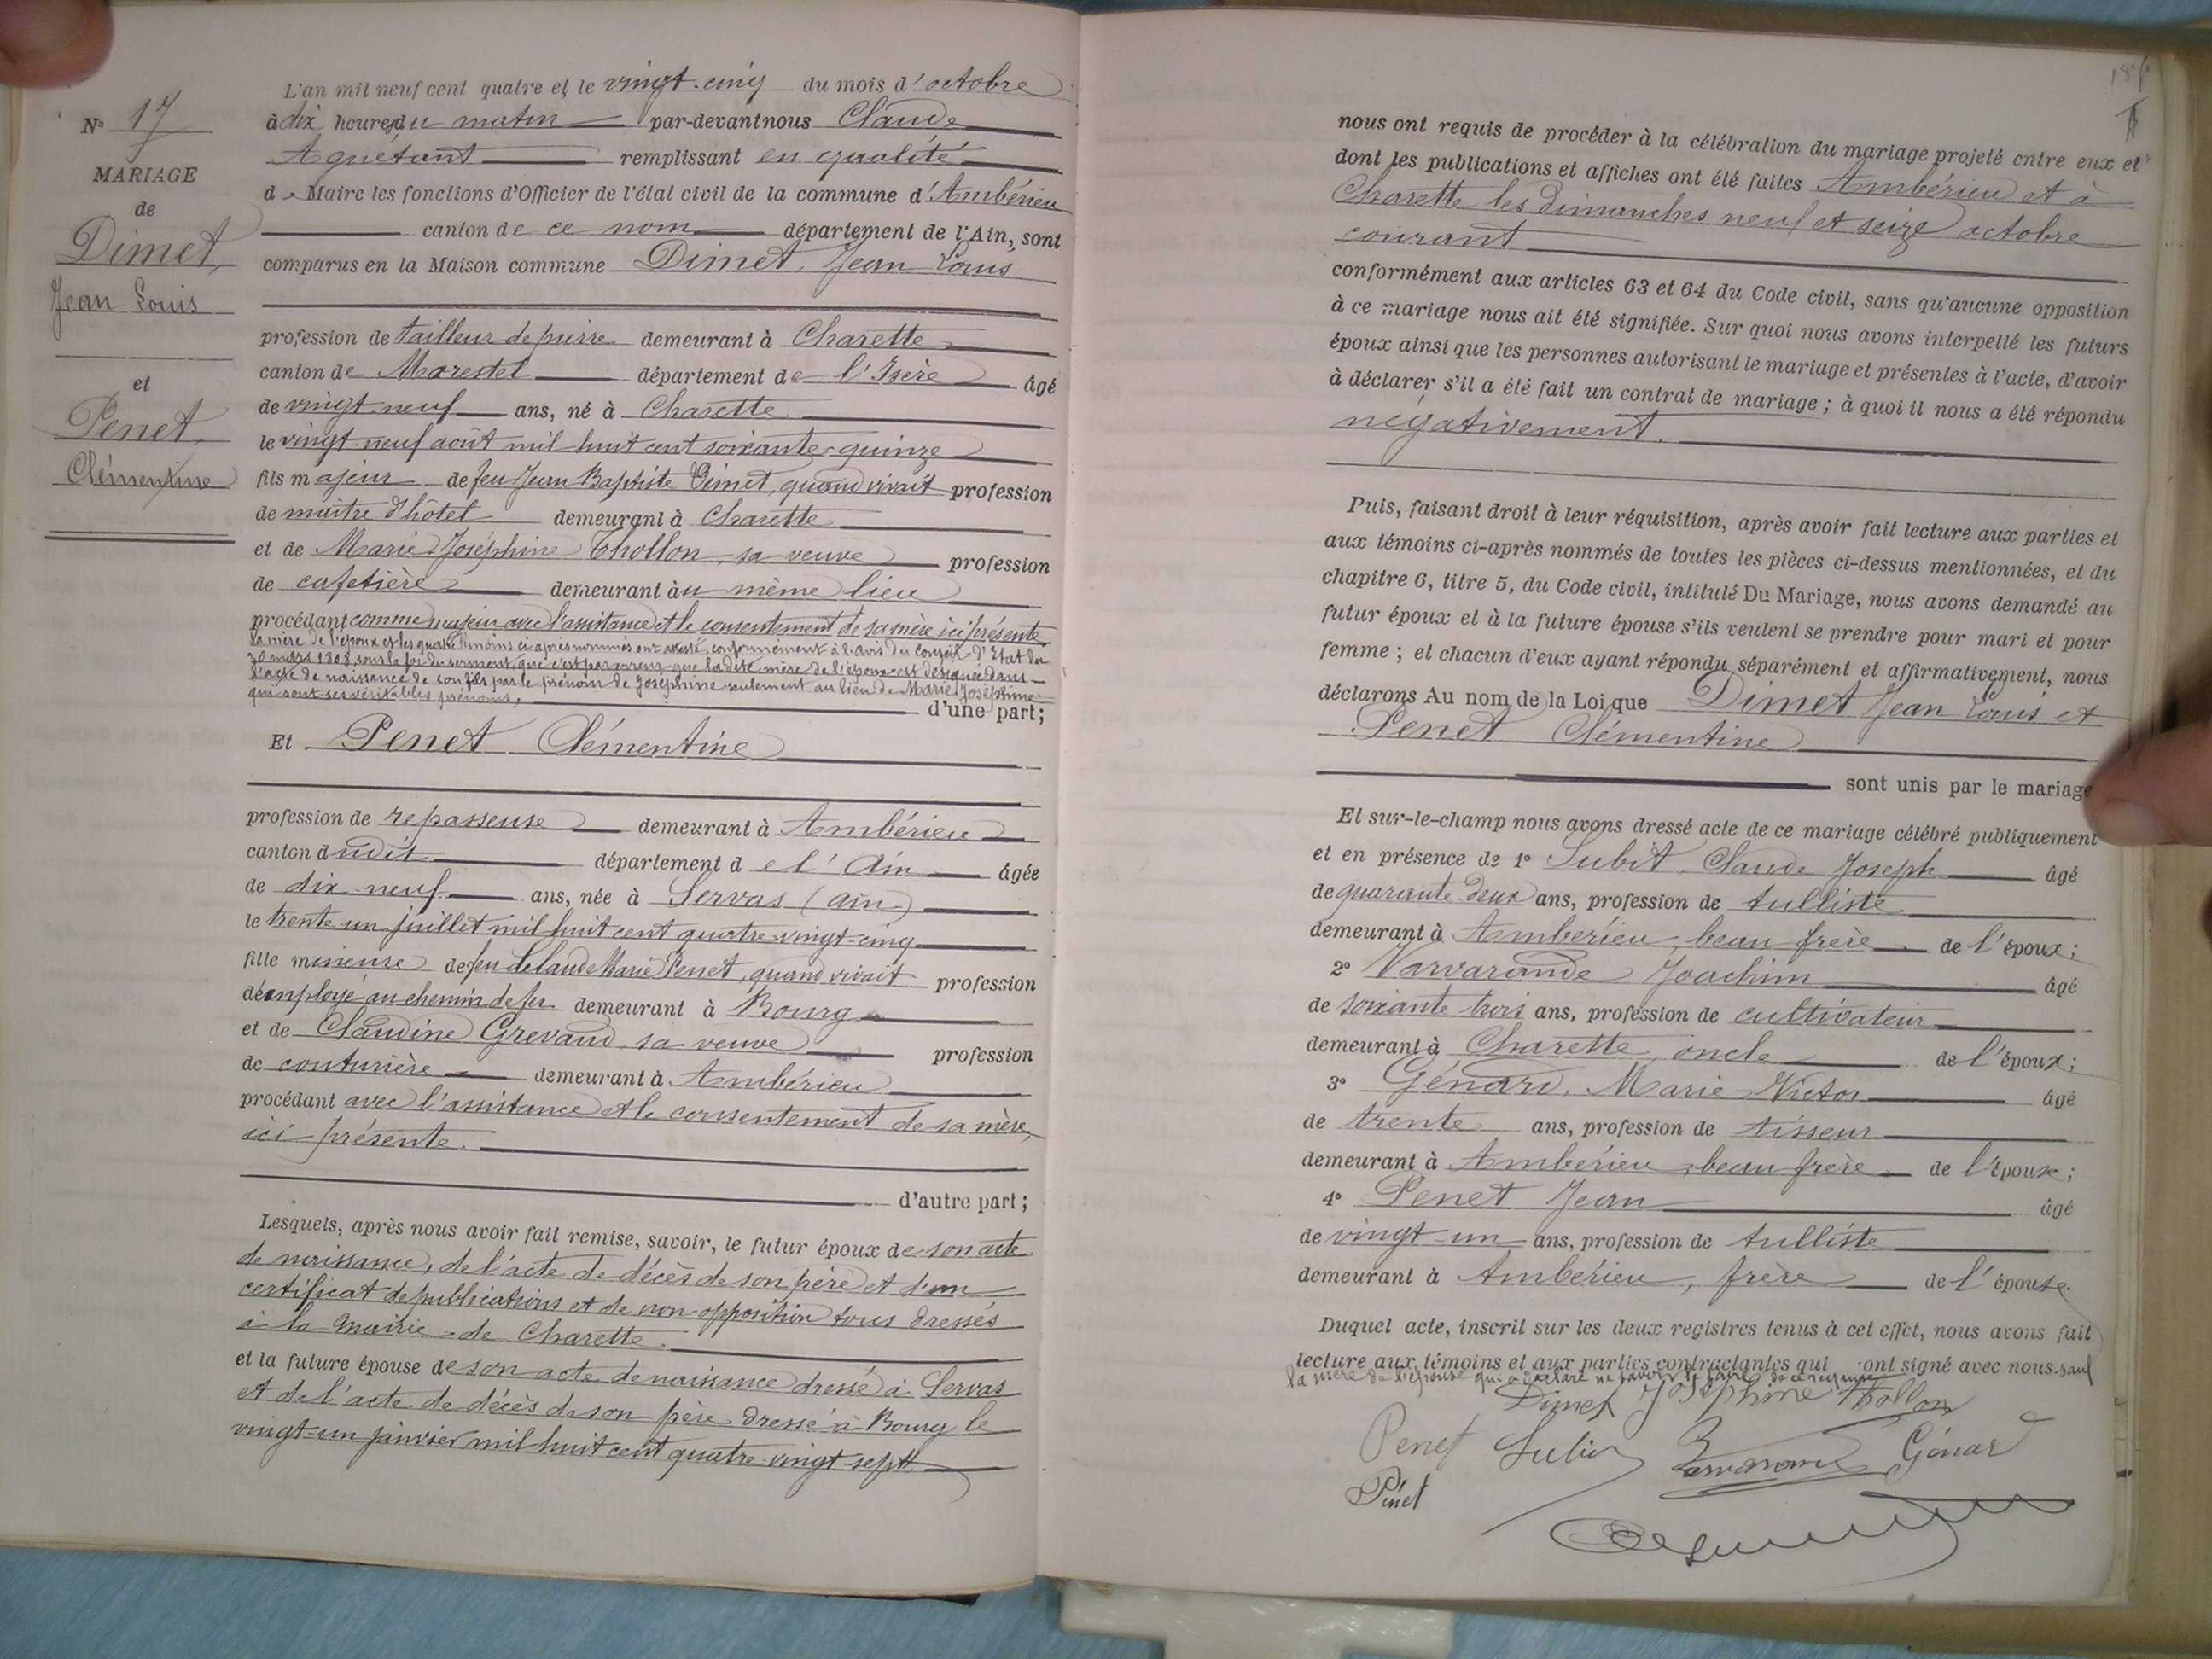 N° 17
MARIAGE
de
Dimet,
Jean Louis
et
Penet,
Clémentine
L'an mil neuf cent quatre et le vingt-cinq du mois d'octobre
à dix heures du matin par-devant nous Claude
Aguétant remplissant en qualité
de Maire les fonctions d'Officier de l'état civil de la commune d'Ambérieu
canton de ce nom département de l'Ain, sont
comparus en la Maison commune Dimet, Jean Louis
profession de tailleur de pierre demeurant à Charette
canton de Morestel département de l'Isère âgé
de vingt-neuf ans, né à Charette
le vingt-neuf août mil huit cent soixante-quinze
fils majeur de feu Jean Baptiste Dimet, quand vivait profession
de maître d'hôtel demeurant à Charette
et de Marie Joséphine Thollon, sa veuve profession
de cafetière demeurant au même lieu
procédant comme majeur avec l'assistance et le consentement de sa mère ici présente
La mère de l'époux et les quatre témoins ci-après nommés ont attesté, conformément à l'avis du Conseil d'Etat du
30 mars 1808 sous la foi du serment, que c'est par erreur que ladite mère de l'époux est désignée dans
l'acte de naissance de son fils par le prénom de Joséphine seulement au lieu de Marie Joséphine
qui sont ses véritables prénoms, d'une part;
Et Penet Clémentine
profession de repasseuse demeurant à Ambérieu
canton dudit département de l'Ain âgée
de dix-neuf ans, née à Servas (Ain)
le trente-un juillet mil huit cent quatre-vingt-cinq
fille mineure de feu Claude Marie Penet, quand vivait profession
d'employé au chemin de fer demeurant à Bourg
et de Claudine Grevaud, sa veuve profession
de couturière demeurant à Ambérieu
procédant avec l'assistance et le consentement de sa mère,
ici présente.
d'autre part;
Lesquels, après nous avoir fait remise, savoir, le futur époux de son acte
de naissance, de l'acte de décès de son père et d'un
certificat de publications et de non-opposition tous dressés
à la Mairie de Charette
et la future épouse de son acte de naissance dressé à Servas
et de l'acte de décès de son père dressé à Bourg le
vingt-un janvier mil huit cent quatre-vingt-sept
nous ont requis de procéder à la célébration du mariage projeté entre eux et
dont les publications et affiches ont été faites Ambérieu et à
Charette les dimanches neuf et seize octobre
courant
conformément aux articles 63 et 64 du Code civil, sans qu'aucune opposition
à ce mariage nous ait été signifiée. Sur quoi nous avons interpellé les futurs
époux ainsi que les personnes autorisant le mariage et présentes à l'acte, d'avoir
à déclarer s'il a été fait un contrat de mariage; à quoi il nous a été répondu
négativement.
Puis, faisant droit à leur réquisition, après avoir fait lecture aux parties et
aux témoins ci-après nommés de toutes les pièces ci-dessus mentionnées, et du
chapitre 6, titre 5, du Code civil, intitulé Du Mariage, nous avons demandé au
futur époux et à la future épouse s'ils veulent se prendre pour mari et pour
femme; et chacun d'eux ayant répondu séparément et affirmativement, nous
déclarons Au nom de la Loi que Dimet Jean Louis et
Penet Clémentine
sont unis par le mariage
Et sur-le-champ nous avons dressé acte de ce mariage célébré publiquement
et en présence de 1° Subit, Claude Joseph âgé
de quarante-deux ans, profession de tulliste
demeurant à Ambérieu, beau-frère de l'époux;
2° Varvarande Joachim âgé
de soixante-trois ans, profession de cultivateur
demeurant à Charette, oncle de l'époux;
3° Génard, Marie Victor âgé
de trente ans, profession de tisseur
demeurant à Ambérieu, beau-frère de l'épouse;
4° Penet Jean âgé
de vingt-un ans, profession de tulliste
demeurant à Ambérieu, frère de l'épouse.
Duquel acte, inscrit sur les deux registres tenus à cet effet, nous avons fait
lecture aux témoins et aux parties contractantes qui ont signé avec nous. sauf
la mère de l'épouse qui a déclaré ne savoir le faire de ce requise
Dimet Joséphine Thollon
Penet Subit Varvarande Génard
Penet